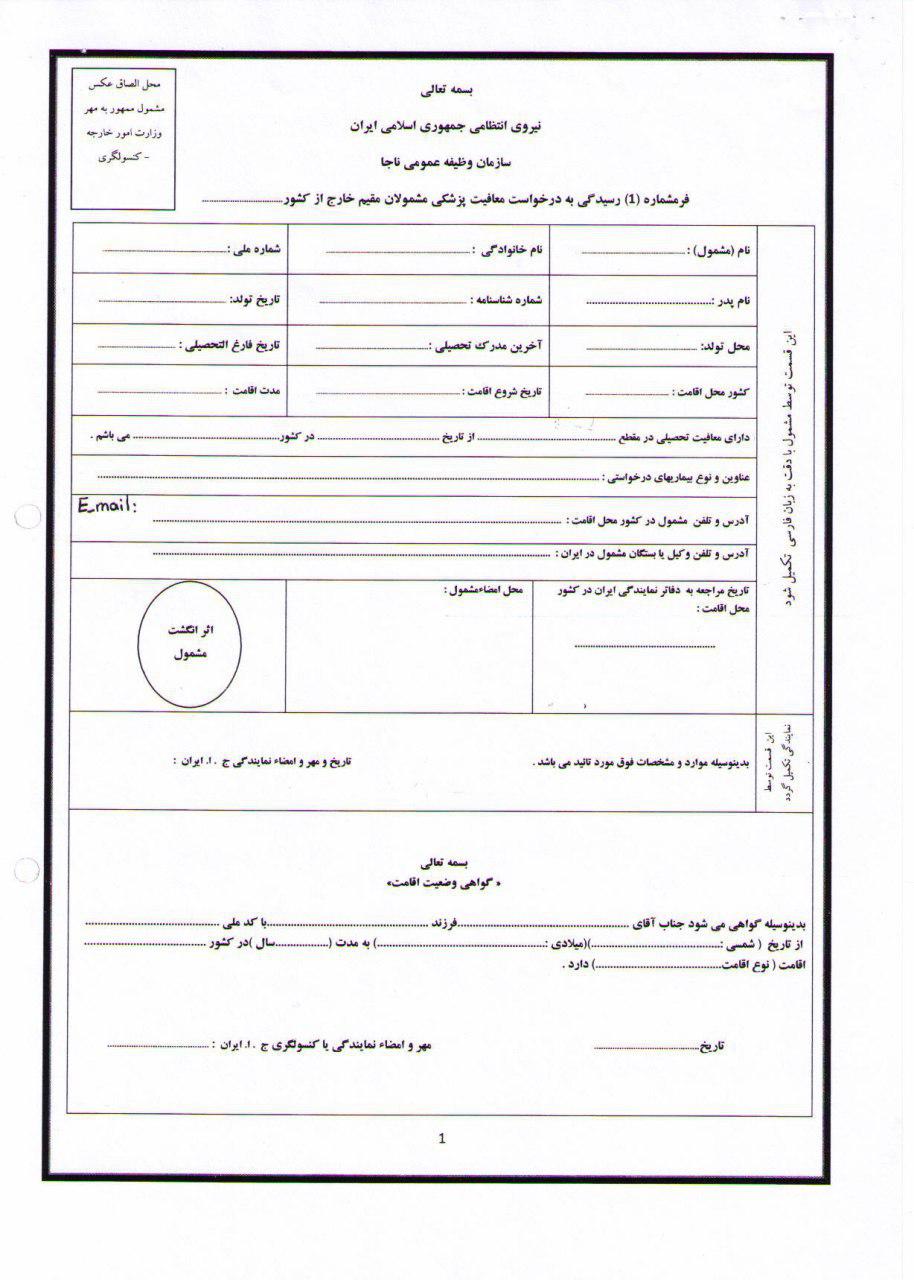 محل الصاق عکس
مشمول ممهور به مهر
وزارت امور خارجه
- کنسولگری
بسمه تعالی
نیروی انتظامی جمهوری اسلامی ایران
سازمان وظیفه عمومی ناجا
فرمشماره (1) رسیدگی به درخواست معافیت پزشکی مشمولان مقیم خارج از کشور....................
نام (مشمول) : ........................ نام خانوادگی : ................................ شماره ملی : ............................
نام پدر : ............................ شماره شناسنامه : ................................ تاریخ تولد: ............................
محل تولد: ........................ آخرین مدرک تحصیلی : ........................ تاریخ فارغ التحصیلی : ....................
کشور محل اقامت : .................... تاریخ شروع اقامت : ................................ مدت اقامت : ............................
دارای معافیت تحصیلی در مقطع ................................ از تاریخ ............................ در کشور................................ می باشم .
عناوین و نوع بیماریهای درخواستی : ........................................................................
E-mail:
آدرس و تلفن مشمول در کشور محل اقامت : ............................................................
آدرس و تلفن وکیل یا بستگان مشمول در ایران : ............................................................
تاریخ مراجعه به دفاتر نمایندگی ایران در کشور
محل اقامت :
................................
محل امضاءمشمول :
اثر انگشت
مشمول
این قسمت توسط مشمول با دقت به زبان فارسی تکمیل شود
بدینوسیله موارد و مشخصات فوق مورد تائید می باشد . تاریخ و مهر و امضاء نمایندگی ج . ا. ایران :
این قسمت توسط
نمایندگی تکمیل گردد
بسمه تعالی
« گواهی وضعیت اقامت»
بدینوسیله گواهی می شود جناب آقای ........................................فرزند ................................با کد ملی ................................
از تاریخ ( شمسی :............................)(میلادی :................................) به مدت (............سال )در کشور ............................
اقامت ( نوع اقامت............................) دارد .
تاریخ........................ مهر و امضاء نمایندگی یا کنسولگری ج . ا. ایران : ........................
1